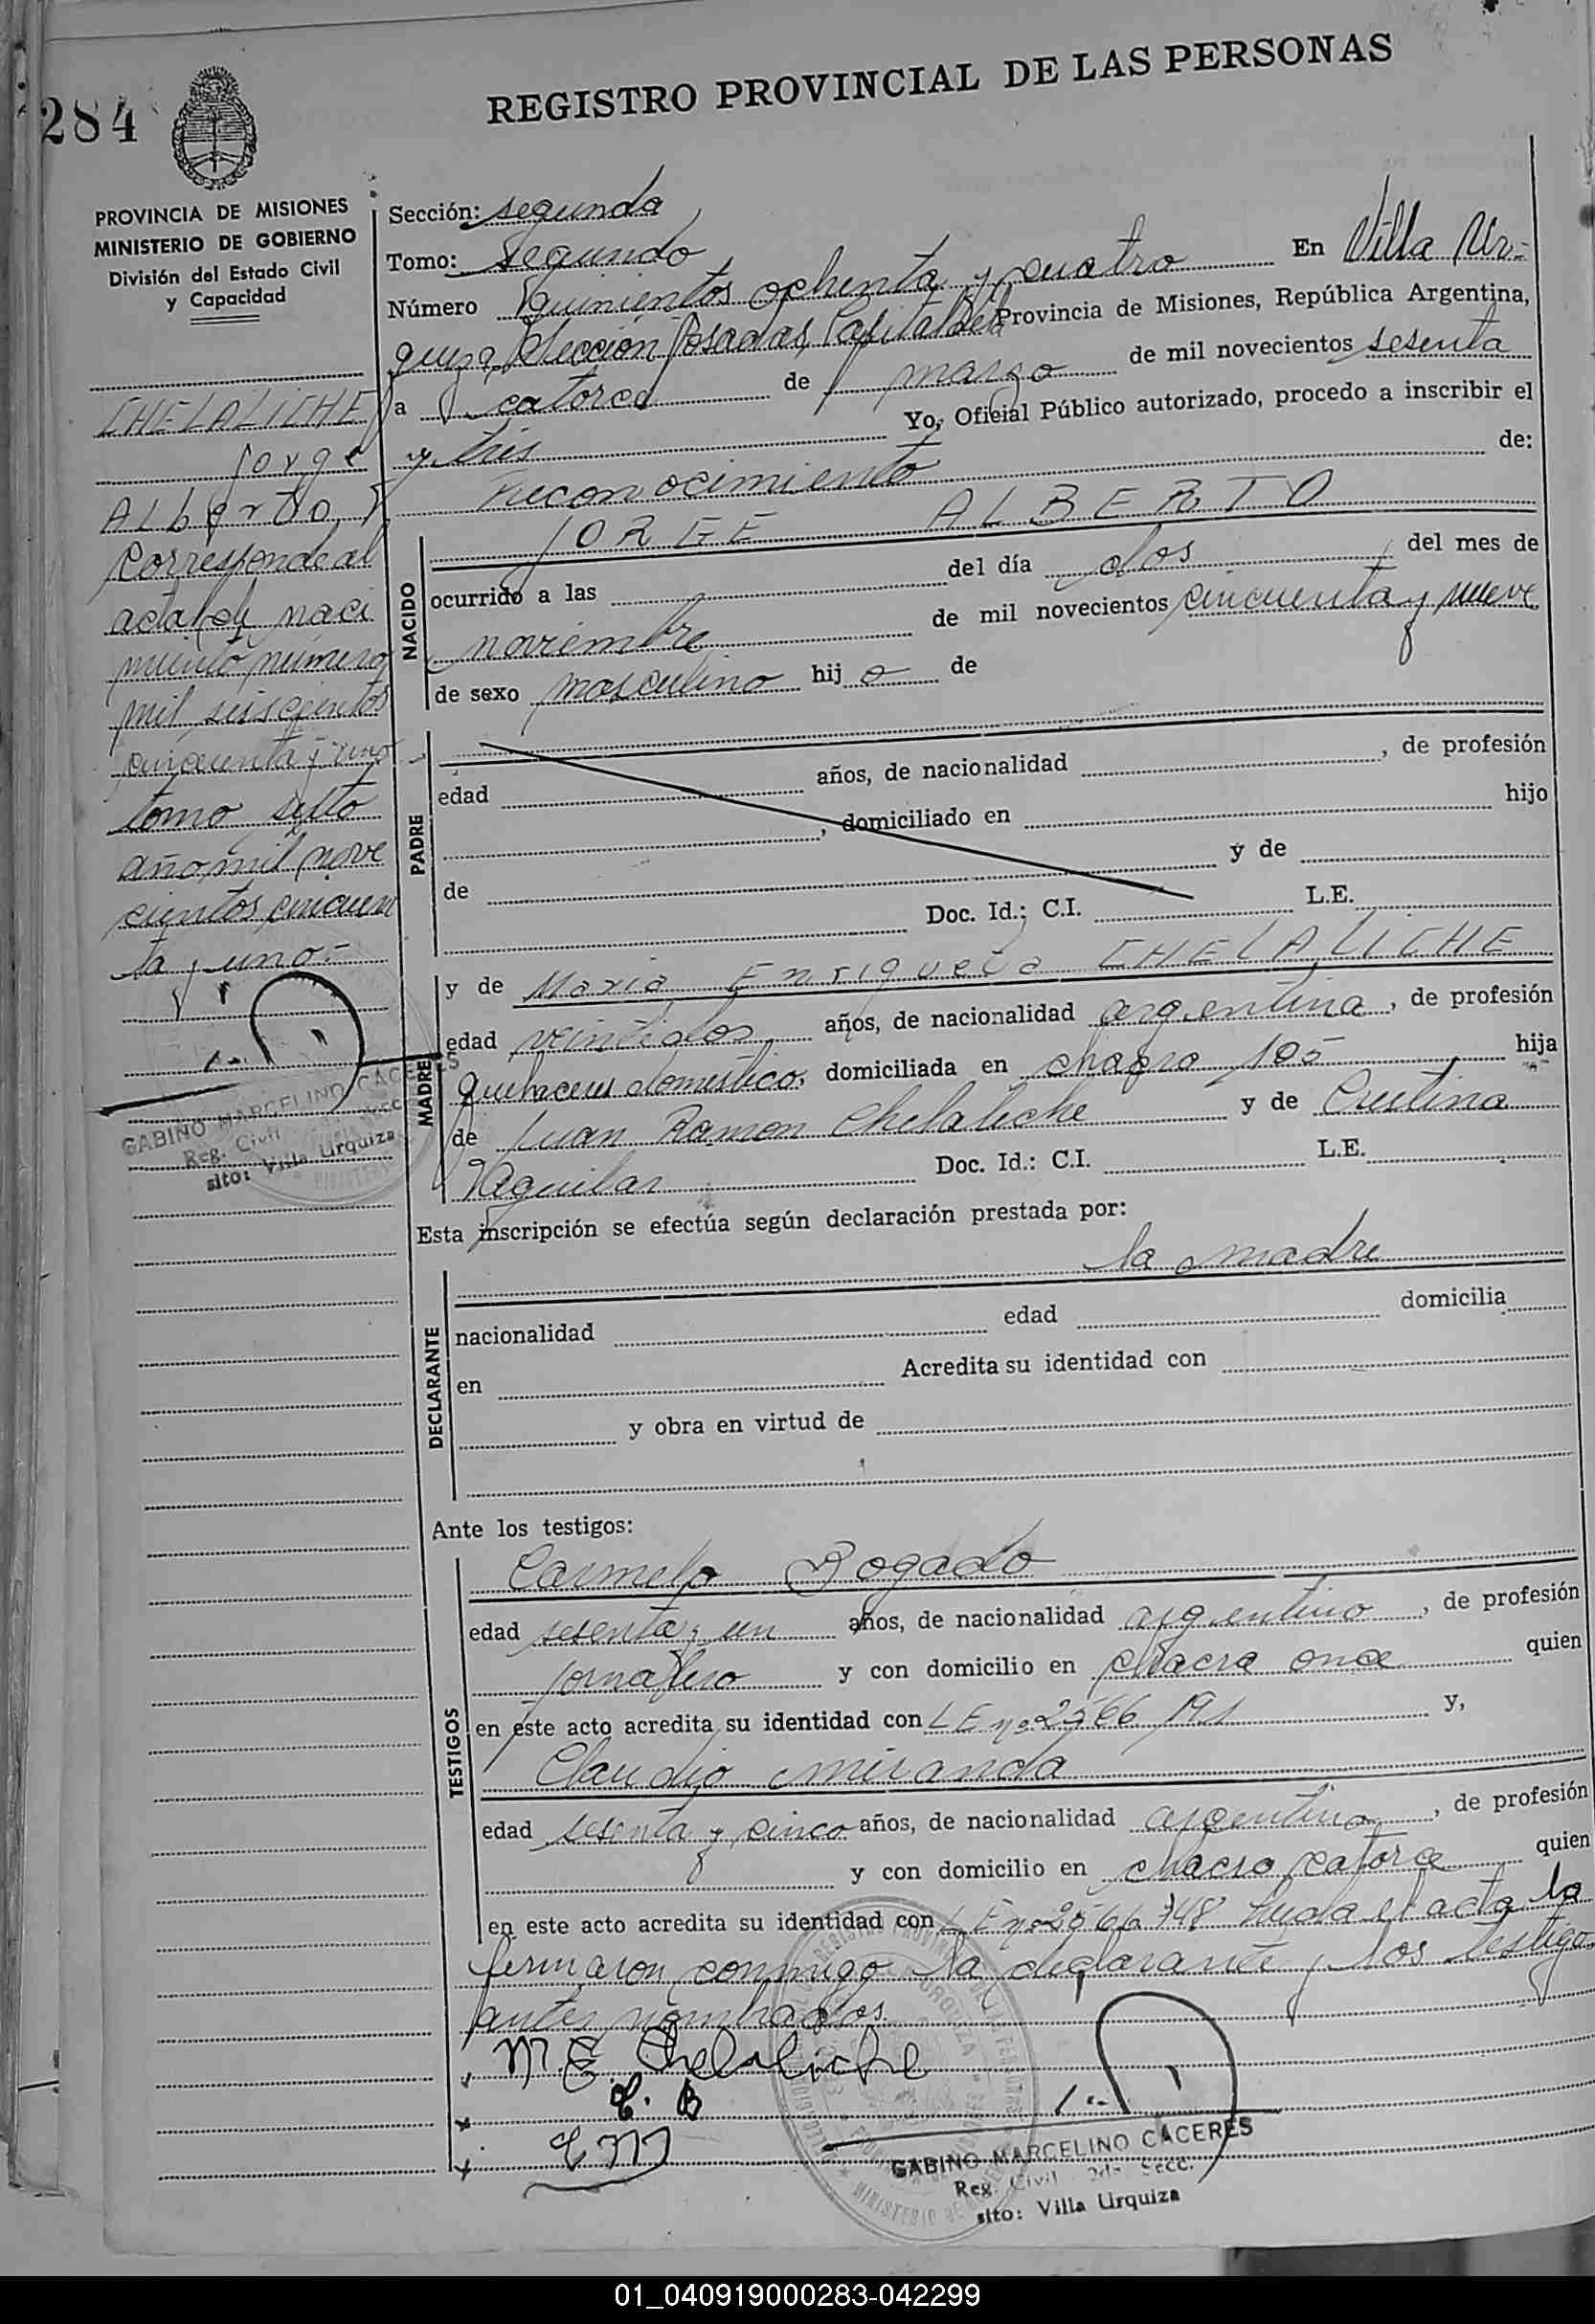 284
REGISTRO PROVINCIAL DE LAS PERSONAS
PROVINCIA DE MISIONES
MINISTERIO DE GOBIERNO
División del Estado Civil
y Capacidad
CHELALICHE
Jorge
Alberto
Corresponde al
acta de naci
miento número
mil seiscientos
cincuenta y uno
tomo sexto
año mil nove
cientos cincuen
ta y uno.-
GABINO MARCELINO CACERES
Reg. Civil Secc.
sito: Villa Urquiza
Sección: segunda
Tomo: segundo
Número quinientos ochenta y cuatro En Villa Ur-
quiza, Sección Posadas, Capital de la Provincia de Misiones, República Argentina,
a catorce de marzo de mil novecientos sesenta
y tres Yo, Oficial Público autorizado, procedo a inscribir el
reconocimiento de:
NACIDO
JORGE ALBERTO
ocurrido a las del día dos del mes de
noviembre de mil novecientos cincuenta y nueve
de sexo masculino hij o de
PADRE
edad años, de nacionalidad , de profesión
, domiciliado en hijo
de y de
Doc. Id.; C.I. L.E.
MADRE
y de Maria Enriqueta CHELALICHE
edad veintidos años, de nacionalidad argentina, de profesión
quehaceres domestico, domiciliada en chacra 105 hija
de Juan Ramon Chelaliche y de Cristina
Aguilar Doc. Id.: C.I. L.E.
Esta inscripción se efectúa según declaración prestada por:
DECLARANTE
la madre
nacionalidad edad domicilia
en Acredita su identidad con
y obra en virtud de
Ante los testigos:
TESTIGOS
Carmelo Bogado
edad sesenta y un años, de nacionalidad argentino, de profesión
jornalero y con domicilio en chacra once quien
en este acto acredita su identidad con LE nº 2566 191 y,
Claudio Miranda
edad sesenta y cinco años, de nacionalidad argentino, de profesión
y con domicilio en chacra catorce quien
en este acto acredita su identidad con LE nº 2566 748 Leida el acta la
firmaron conmigo la declarante y los testigos
antes nombrados.
M. E. Chelaliche
C. B
C M
GABINO MARCELINO CACERES
Reg. Civil 2da. Secc.
sito: Villa Urquiza
01_040919000283-042299